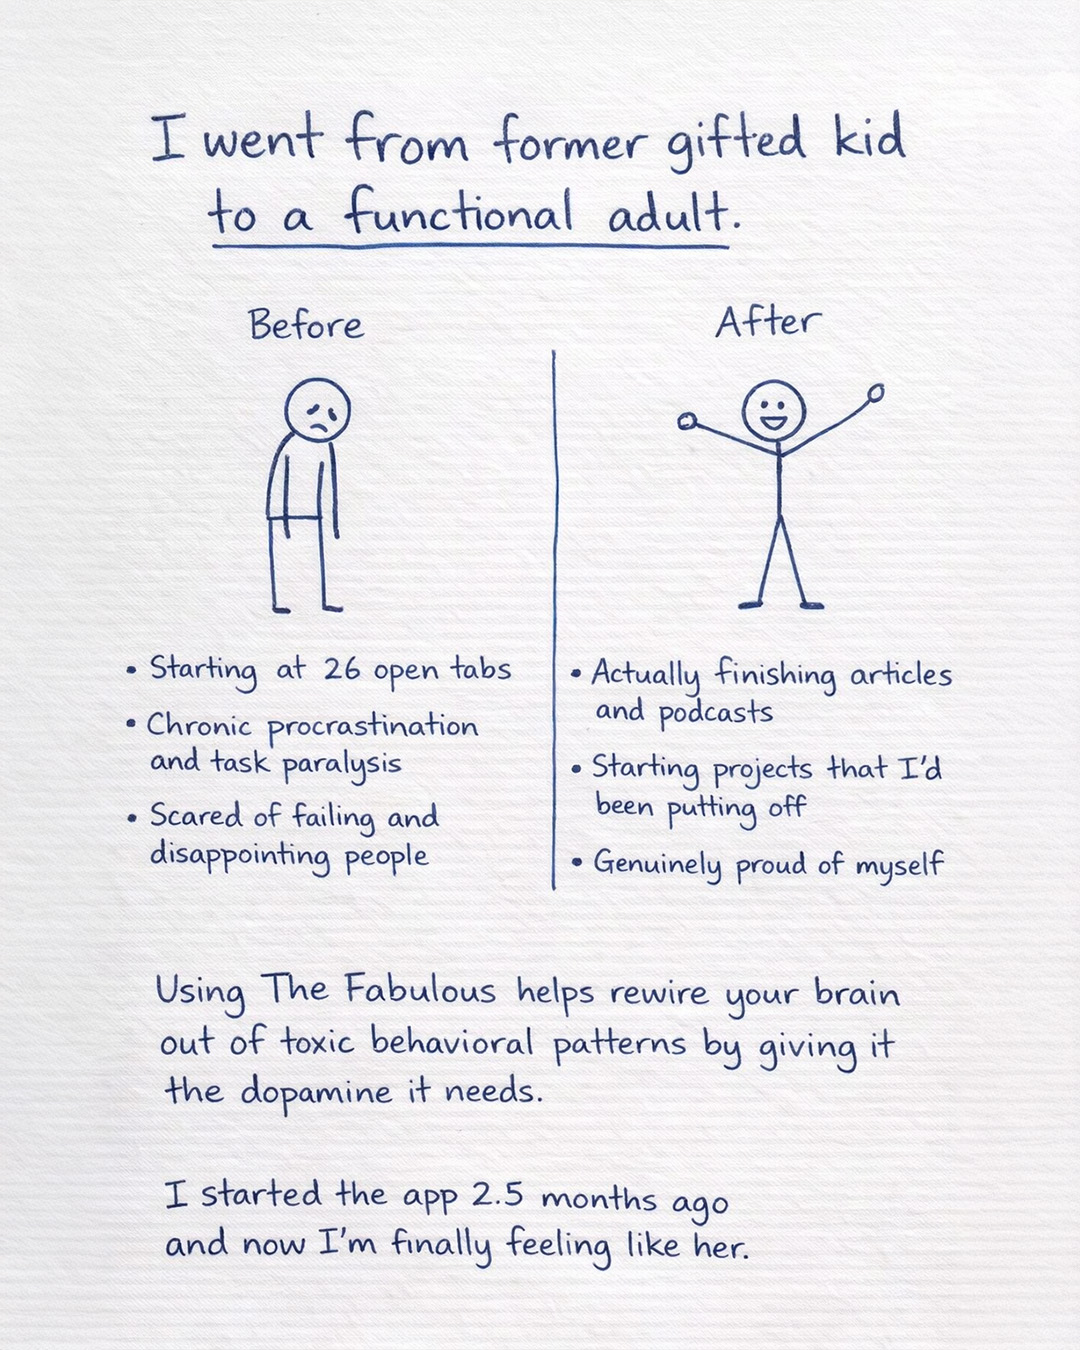 I went from former gifted kid
to a functional adult.
Before
• Starting at 26 open tabs
• Chronic procrastination
and task paralysis
• Scared of failing and
disappointing people
After
• Actually finishing articles
and podcasts
• Starting projects that I'd
been putting off
• Genuinely proud of myself
Using The Fabulous helps rewire your brain
out of toxic behavioral patterns by giving it
the dopamine it needs.
I started the app 2.5 months ago
and now I'm finally feeling like her.